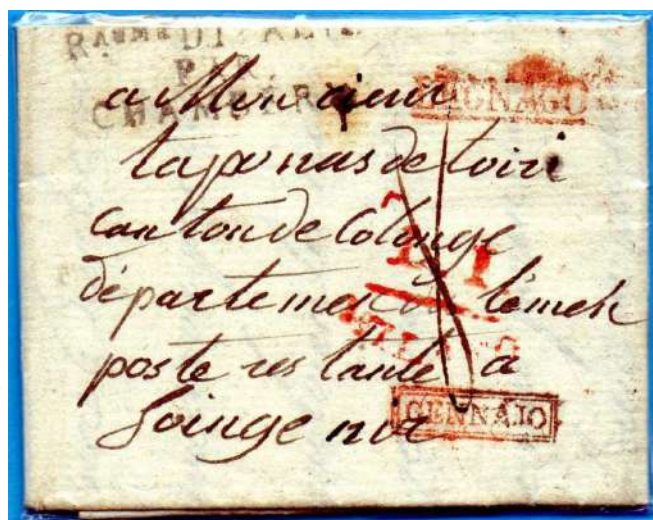 PAR
CHAMBERY
LEGNAGO
a Monsieur
taponas de toiri
canton de Colonge
département du lémek
poste restante a
GENNAJO